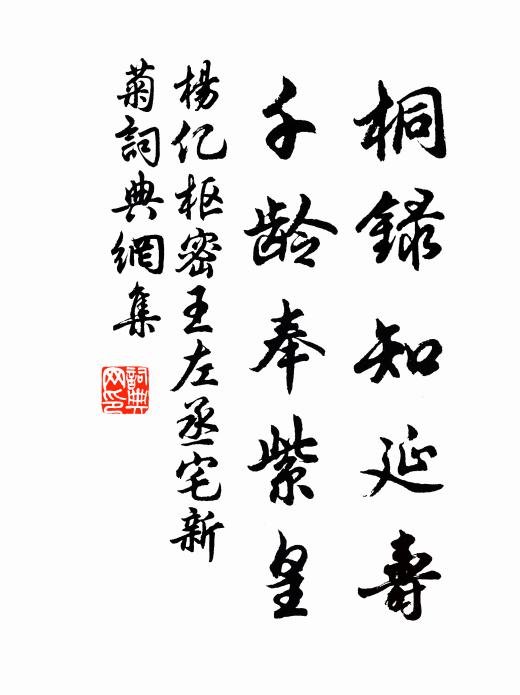 桐録知延壽
千龄奉紫皇
楊亿枢密王左丞宅新
菊詞典網集
詞典網印